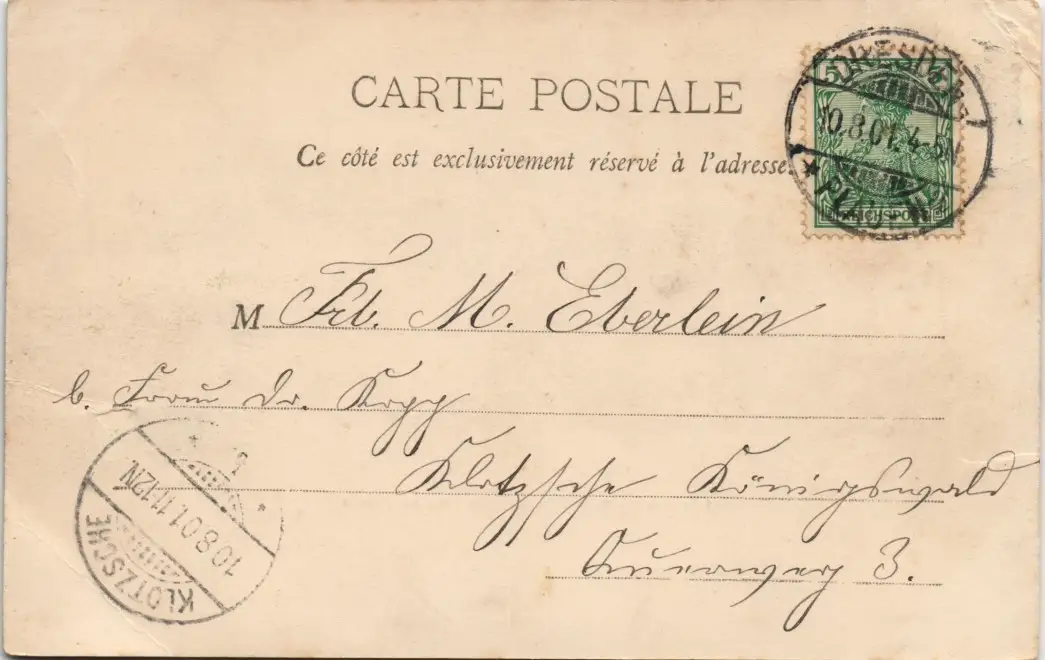 CARTE POSTALE
Ce côté est exclusivement réservé à l'adresse.
5
REICHSPOST
DRESDEN
10.8.01. 4-5N
* PLAUEN
M Frl. M. Eberlein
b. Frau Dr. Kopp
Klotzsche Königswald
Querweg 3.
KLOTZSCHE
10.8.01. 11-12N